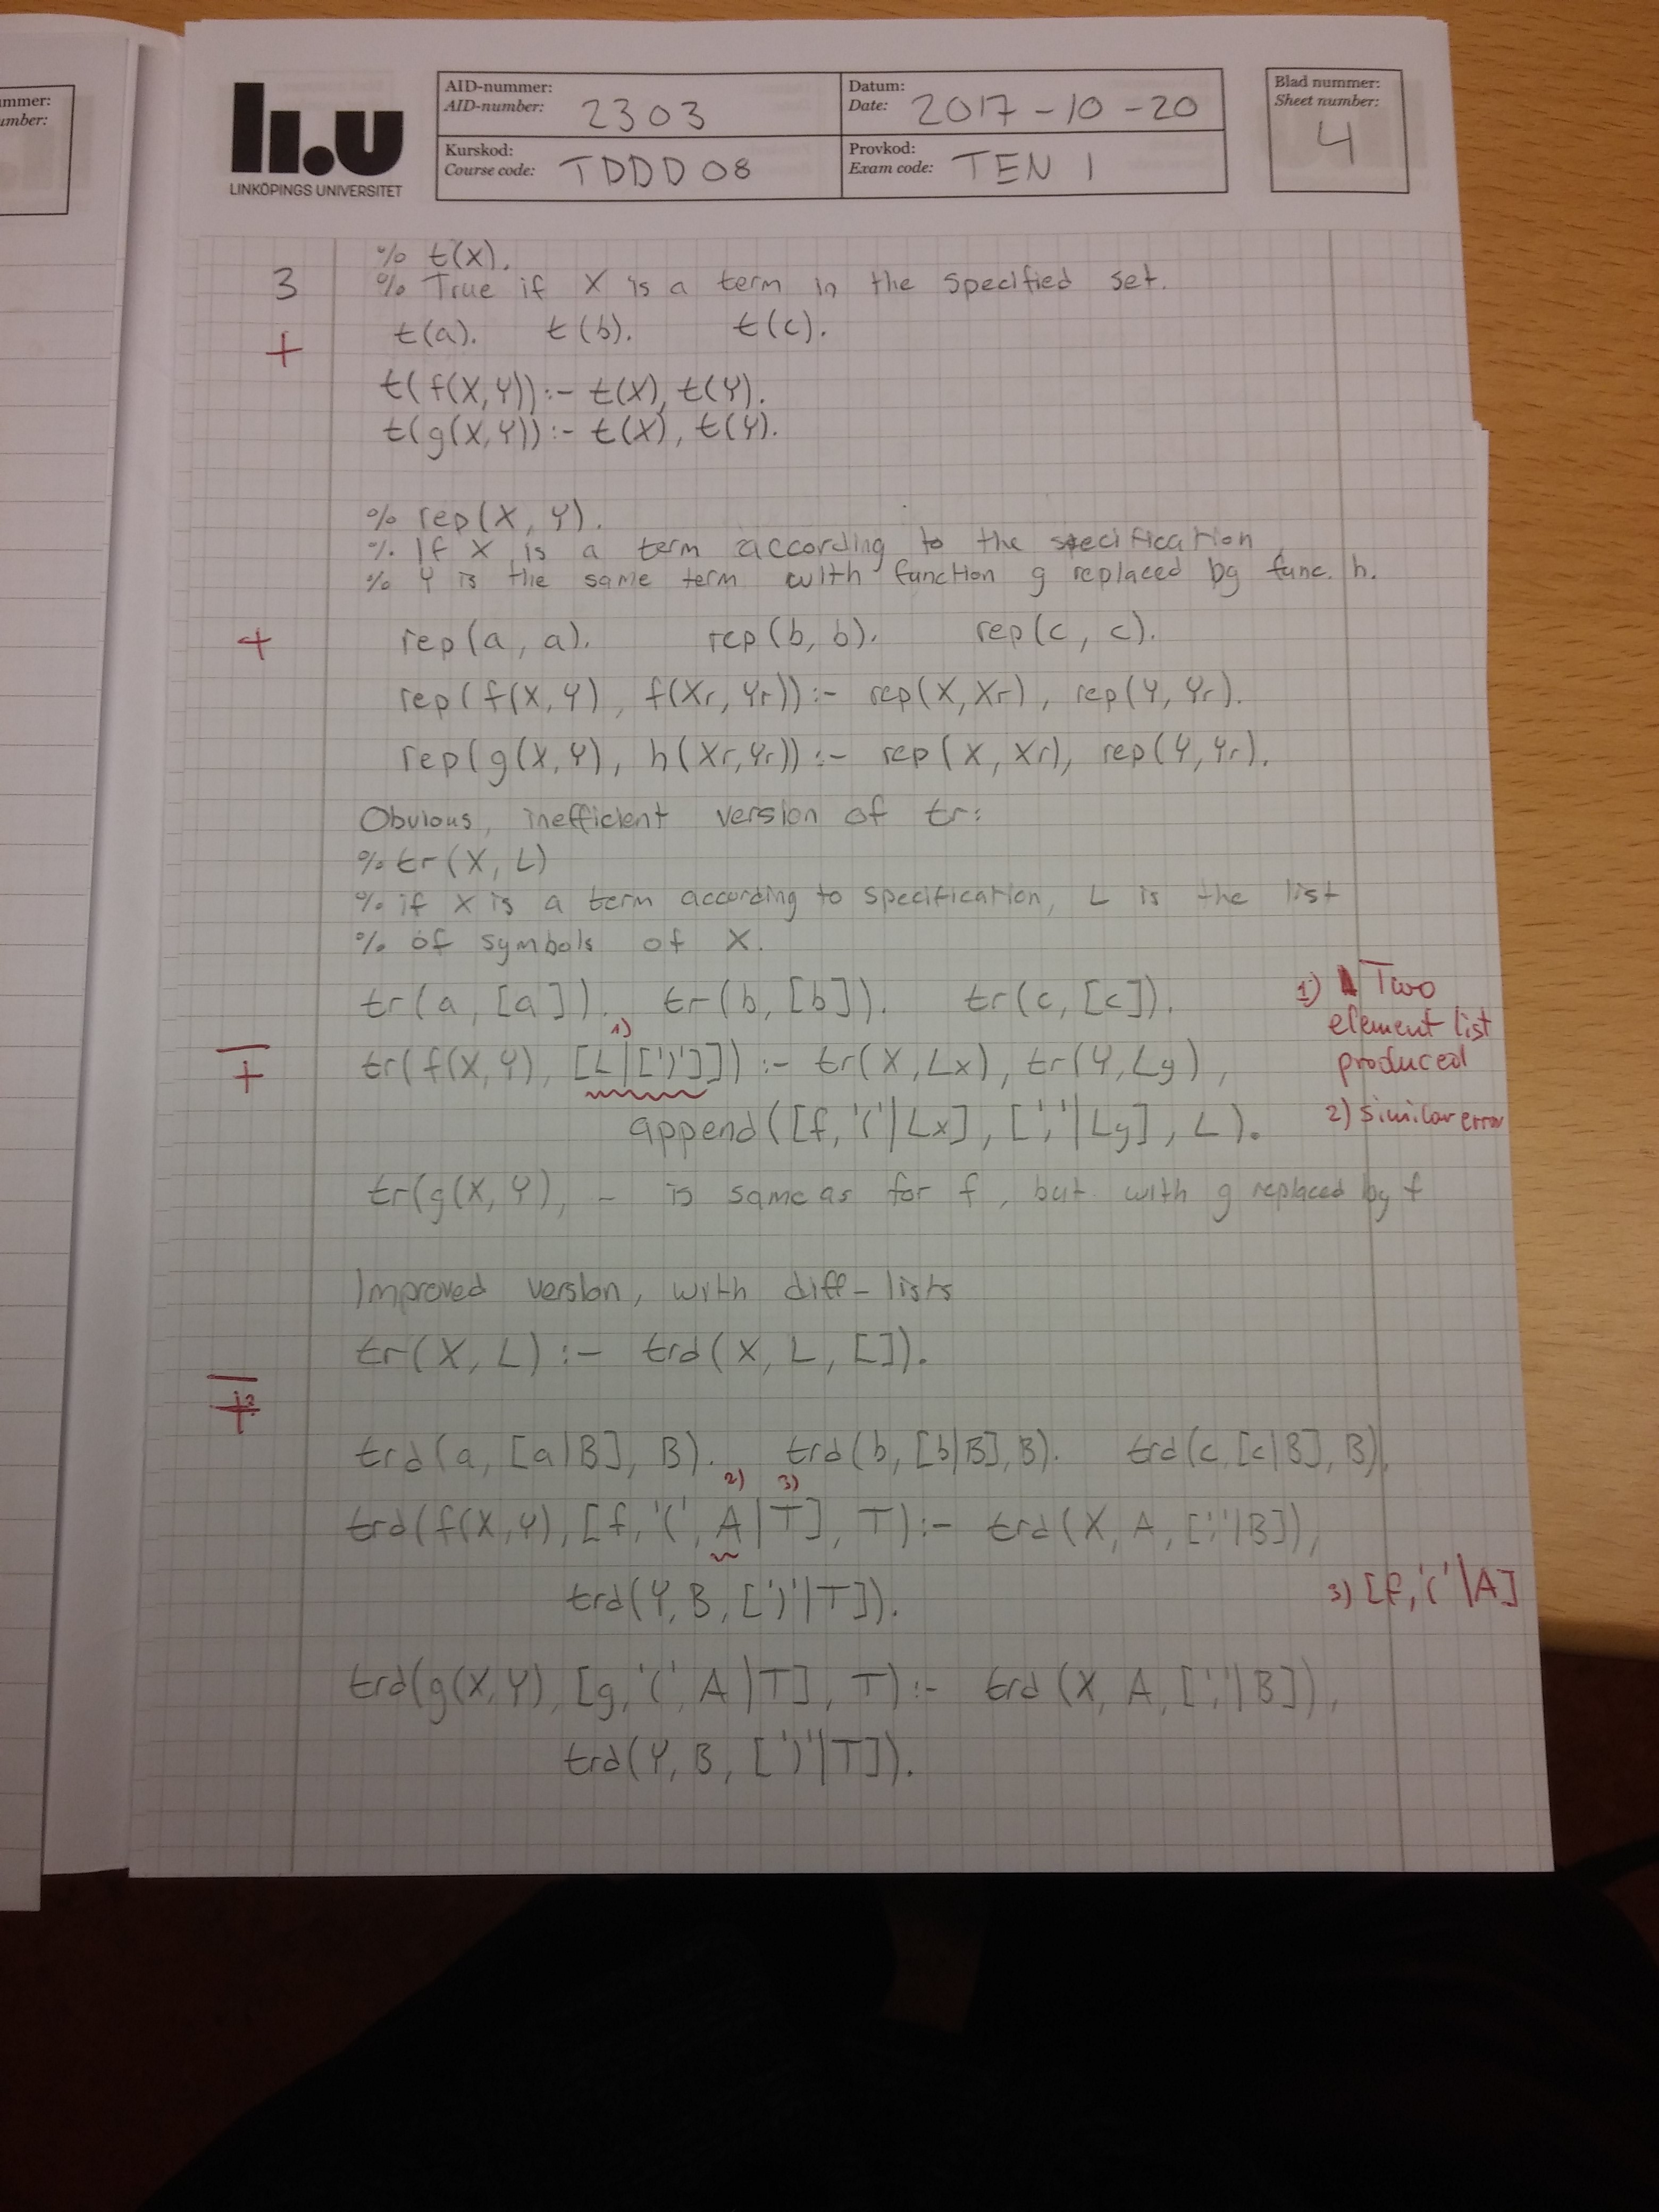 ummer:
umber:
li.u
LINKÖPINGS UNIVERSITET
AID-nummer:
AID-number: 2303
Datum:
Date: 2017-10-20
Kurskod:
Course code: TDDD08
Provkod:
Exam code: TEN 1
Blad nummer:
Sheet number:
4
% t(X).
3 % True if X is a term in the specified set.
+ t(a). t(b). t(c).
t(f(X,Y)):- t(X), t(Y).
t(g(X,Y)):- t(X), t(Y).
% rep(X, Y).
% If X is a term according to the stecification
% Y is the same term with function g replaced by func. h.
+ rep(a, a). rep(b, b). rep(c, c).
rep(f(X,Y), f(Xr,Yr)):- rep(X,Xr), rep(Y,Yr).
rep(g(X,Y), h(Xr,Yr)):- rep(X,Xr), rep(Y,Yr).
Obvious, inefficient version of tr:
% tr(X, L)
% if X is a term according to specification, L is the list
% of symbols of X.
tr(a, [a]). tr(b, [b]). tr(c, [c]).
1) Two
element list
produced
1)
+ tr(f(X,Y), [L|[')']]) :- tr(X,Lx), tr(Y,Ly),
append([f,'('|Lx], [','|Ly], L).
2) similar error
tr(g(X,Y), - is same as for f, but with g replaced by f
Improved version, with diff-lists
tr(X, L) :- trd(X, L, []).
trd(a, [a|B], B). trd(b, [b|B], B). trd(c, [c|B], B).
2) 3)
trd(f(X,Y), [f,'(', A|T], T):- trd(X, A, [','|B]),
trd(Y, B, [')'|T]).
3) [f,'('|A]
trd(g(X,Y), [g,'(', A|T], T):- trd(X, A, [','|B]),
trd(Y, B, [')'|T]).